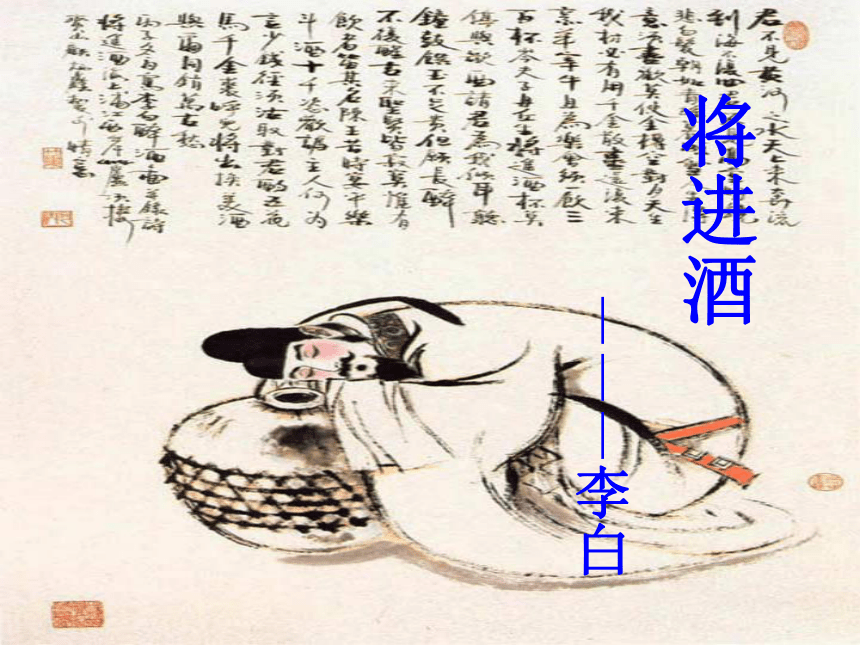 将进酒
———李白
君不見黃河之水天上來奔流
到海不復回
悲白髮朝如青絲
意須盡歡莫使金樽空對月天生
我材必有用千金散盡還復來
烹羊宰牛且為樂會須一飲三
百杯岑夫子丹丘生將進酒杯莫
歌一曲請君為我傾耳聽
鐘鼓饌玉不足貴但願長醉
不復醒古來聖賢皆寂寞惟有
飲者留其名陳王昔時宴平樂
斗酒十千恣歡謔主人何為
言少錢徑須沽取對君酌五花
馬千金裘呼兒將出換美酒
與爾同銷萬古愁
李白醉酒圖
將進酒